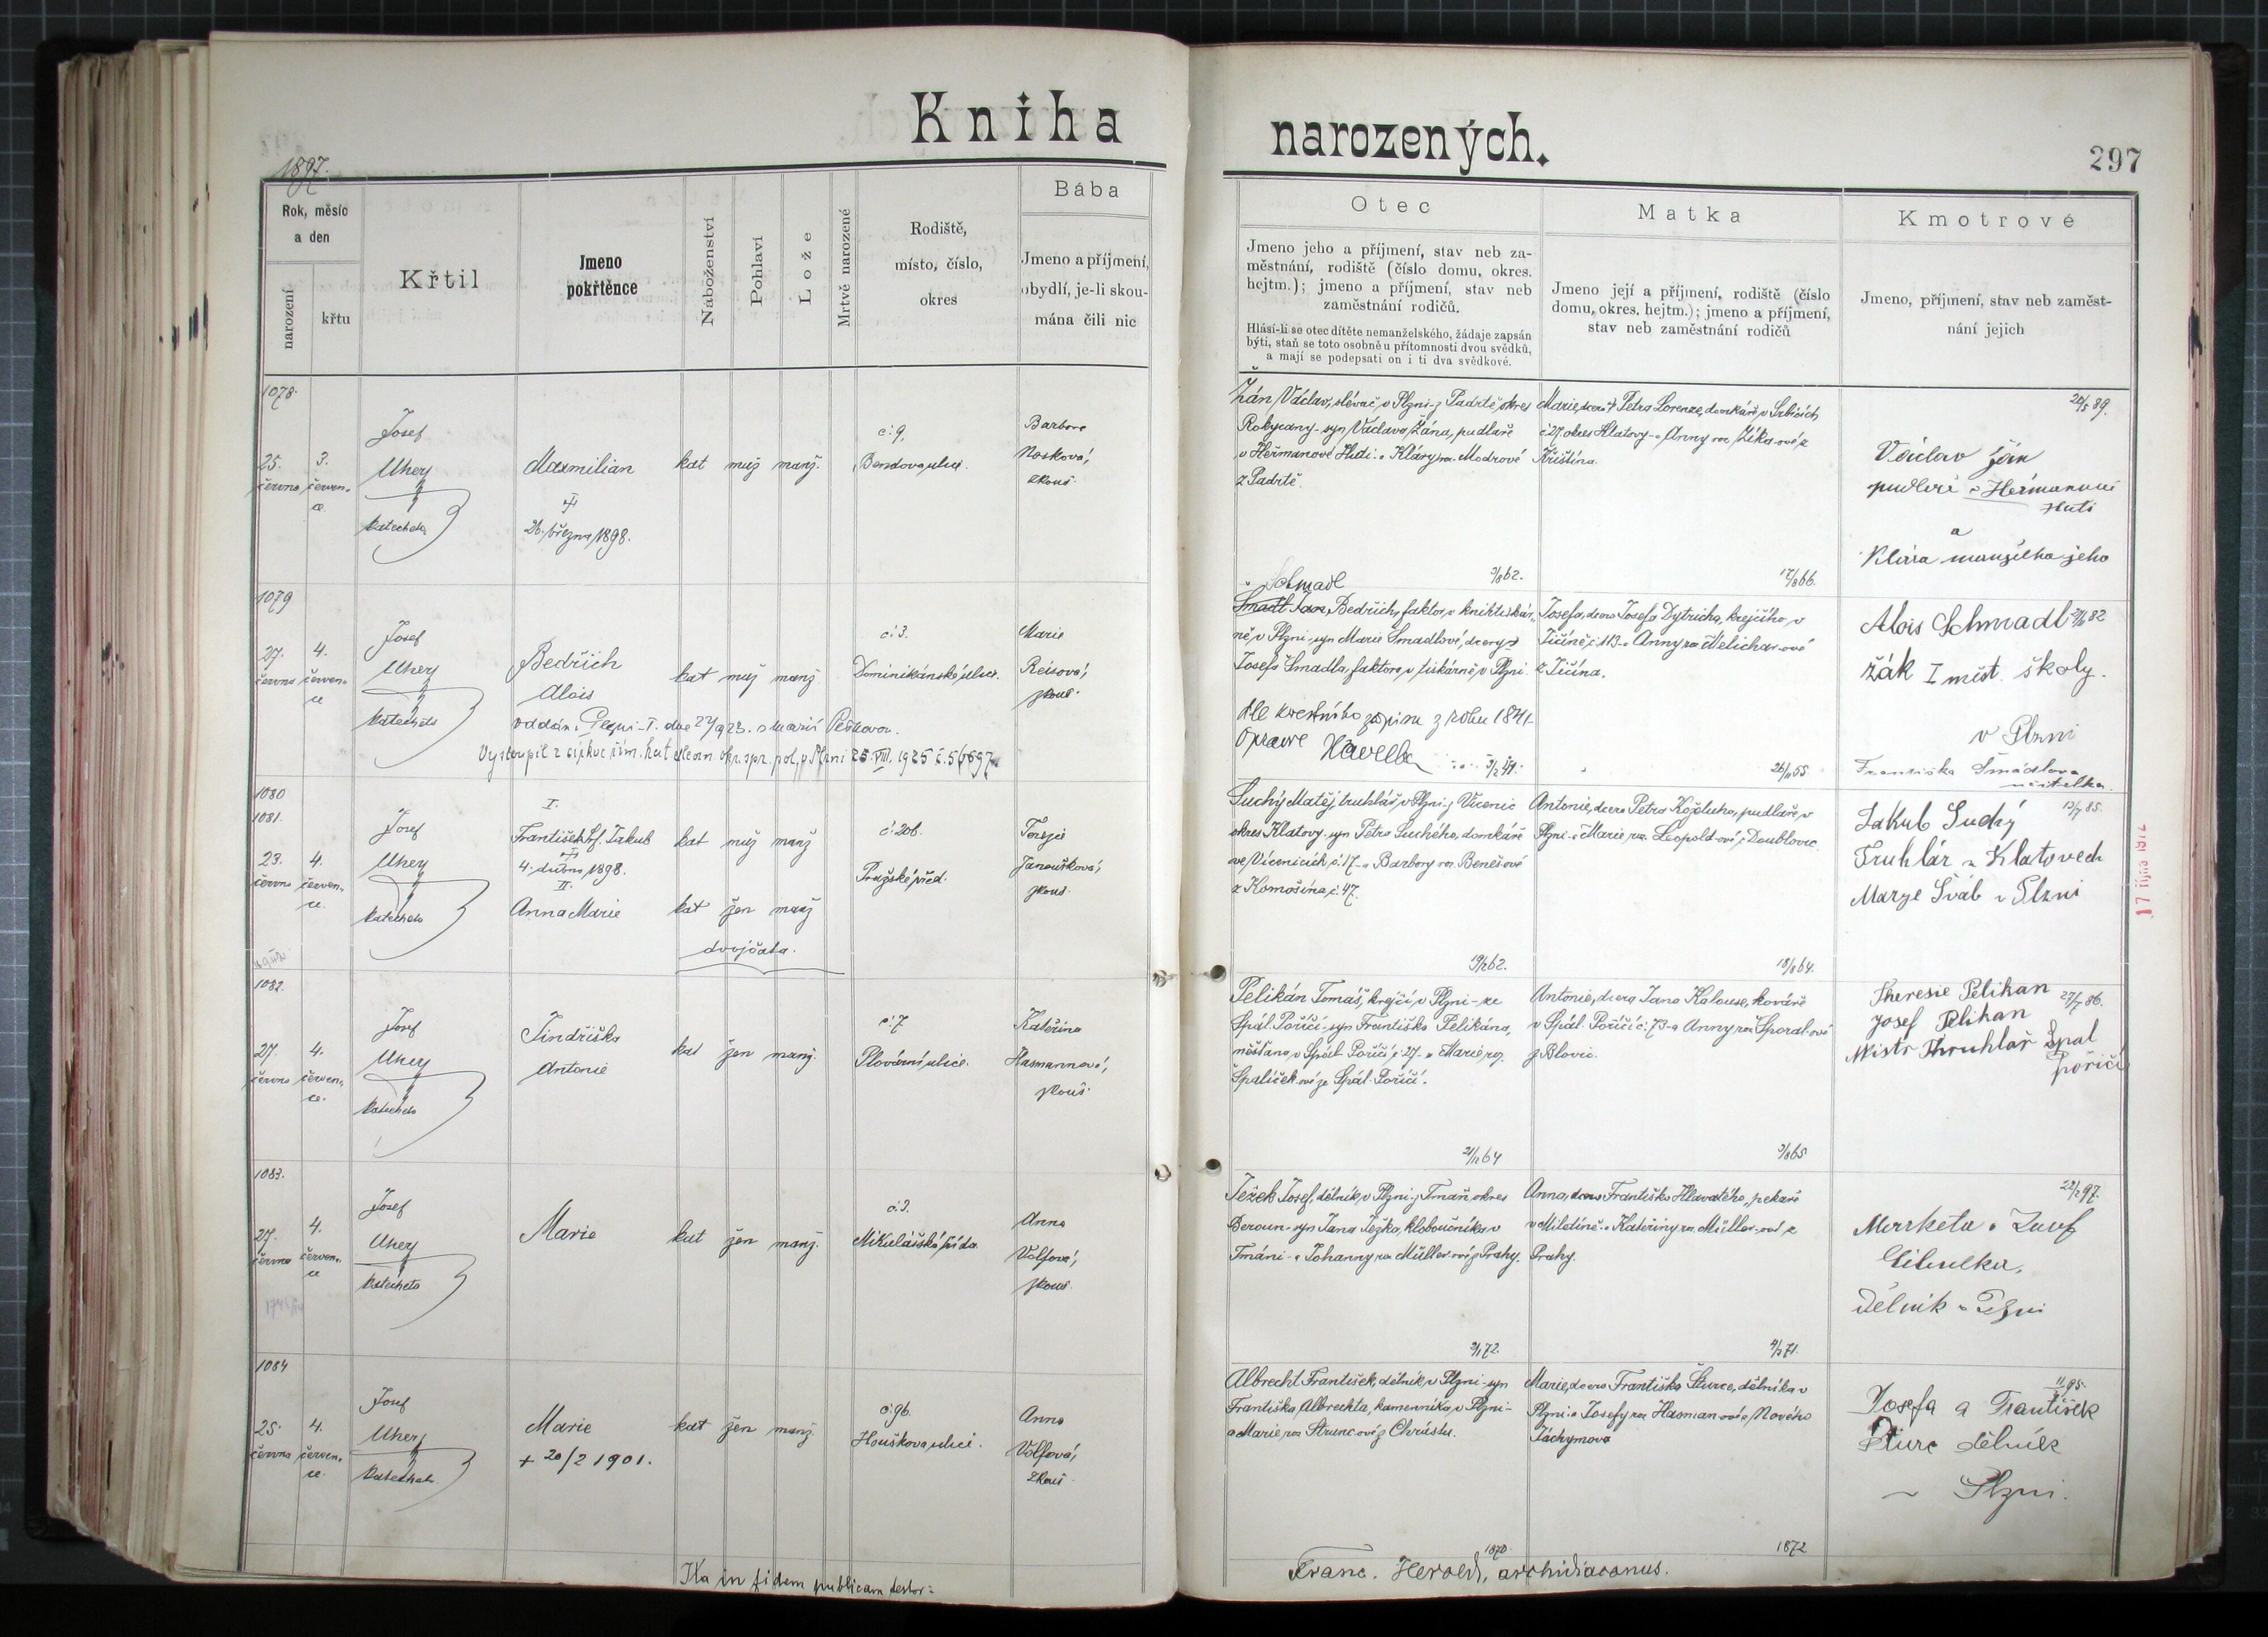 Kniha narozených.
297
1897.
Rok, měsíc
a den
narození
křtu
Křtil
Jmeno
pokřtěnce
Náboženství
Pohlaví
Lože
Mrtvě narozené
Rodiště,
místo, číslo,
okres
Bába
Jmeno a příjmení,
obydlí, je-li skou-
mána čili nic
Otec
Jmeno jeho a příjmení, stav neb za-
městnání, rodiště (číslo domu, okres.
hejtm.); jmeno a příjmení, stav neb
zaměstnání rodičů.
Hlásí-li se otec dítěte nemanželského, žádaje zapsán
býti, staň se toto osobně u přítomnosti dvou svědků,
a mají se podepsati on i ti dva svědkové.
Matka
Jmeno její a příjmení, rodiště (číslo
domu, okres. hejtm.); jmeno a příjmení,
stav neb zaměstnání rodičů
Kmotrové
Jmeno, příjmení, stav neb zaměst-
nání jejich
1078.
25.
června
3.
červen-
ce.
Josef
Uhery
katecheta
Maxmilian
26. března 1898.
kat muž manž.
č: 9.
Bendova ulice.
Barbora
Nosková,
zkouš.
Žán Václav, slévač, v Plzni z Padrtě okres
Rokycany - syn Václava Žána, pudlaře
v Heřmanově Huti a Kláry roz. Modrové
z Padrtě.
3/8 62.
Marie, dcera Petra Lorenze, domkáře v Srbicích,
č 27 okres Klatovy - a Anny roz Zíka-ové z
Křištína.
12/8 66.
Václav Žán
pudléř z Heřmanově
Huti
a
Klára manželka jeho
1079
27.
června
4.
červen-
ce
Josef
Uhery
katecheta
Bedřich
Alois
kat muž manž
č: 3.
Dominikánská ulice.
Marie
Reisová,
zkouš.
oddán: Plzni-I. dne 27/9 23. s Marií Peškovou.
Vystoupil z církve řím. kat. okr. spr. pol. v Plzni 25. VIII. 1925
Schmadl
Bedřich, faktor v knihtiskár-
ně v Plzni - syn Marie Smadlové, dcery
Josefa Šmadla, faktora v tiskárně v Plzni
dle křestního zápisu z roku 1841
Opravil Havelka
Josefa, dcera Josefa Dytricha, krejčího, v
Jičíně č: 113 - a Anny roz Melichar-ové
z Jičína.
26/11 55
Alois Schmadl
žák I měst. školy.
v Plzni
Františka Šmádlova
učitelka.
1080
1081.
23.
června
4.
červen-
ce.
Josef
Uhery
katecheta
I.
František Jakub
4. dubna 1898.
II.
Anna Marie
kat muž manž
kat žen manž
dvojčata.
č: 206.
Pražské před.
Terezie
Janoušková,
zkouš.
Suchý Matěj, truhlář v Plzni z Vícenic
okres Klatovy - syn Petra Suchého, domkáře
ve Vícenicích č: 17 - a Barbory roz. Benešové
z Komošína, č: 47.
19/2 62.
Antonie, dcera Petra Koželuha, pudlaře, v
Plzni - a Marie, roz. Leopold-ové z Doublovic
18/8 64.
Jakub Suchý
Truhlár z Klatovech
Marye Šváb v Plzni
17 října 1912
1082.
27.
června
4.
červen-
ce.
Josef
Uhery
katecheta
Jindřiška
Antonie
kat žen manž.
č: 7
Plovární ulice.
Kateřina
Hasmannová,
zkouš.
Pelikán Tomáš, krejčí, v Plzni - ze
Spál. Poříčí - syn Františka Pelikána,
měšťana, v Spál. Poříčí č 27 - a Marie roz.
Špalíček-ové ze Spál. Poříčí.
Antonie, dcera Jana Kalouse, kováře
v Spál. Poříčí č: 73 - a Anny roz Sporal-ové
z Blovic.
3/8 65
Theresie Pelikan
27/7 86.
Josef Pelikan
Mistr Thruhlař Spal
Pořičí
1083.
27.
června
4.
červen-
ce
Josef
Uhery
katecheta
Marie
kat žen manž.
č: 3.
Mikulášská třída
Anna
Volfová,
zkouš.
Ježek Josef, dělník, v Plzni, z Tmaň okres
Beroun - syn Jana Ježka, kloboučníka v
Tmáni - a Johanny, roz Müller-ové z Prahy.
Anna, dcera Františka Hlavatého, pekaře
v Miletíně - a Kateřiny roz. Müller-ové z
Prahy.
Marketa a Josef
Cibulka,
Dělník v Plzni
1084
25.
června
4.
červen-
ce.
Josef
Uhery
katecheta
Marie
+ 20/2 1901.
kat žen manž.
č: 96.
Houškova ulice.
Anna
Volfová,
zkouš.
Albrecht František, dělník, v Plzni - syn
Františka Albrechta, kameníka, v Plzni -
a Marie roz Strunc-ové z Chrástu.
1870.
Marie, dcera Františka Šturce, dělníka v
Plzni a Josefy roz Hasman-ové z Nového
Jáchymova
1872
Josefa a František
Šturc dělník
v Plzni.
Ita in fidem publicam testor:
Franc. Herold, archidiaconus.